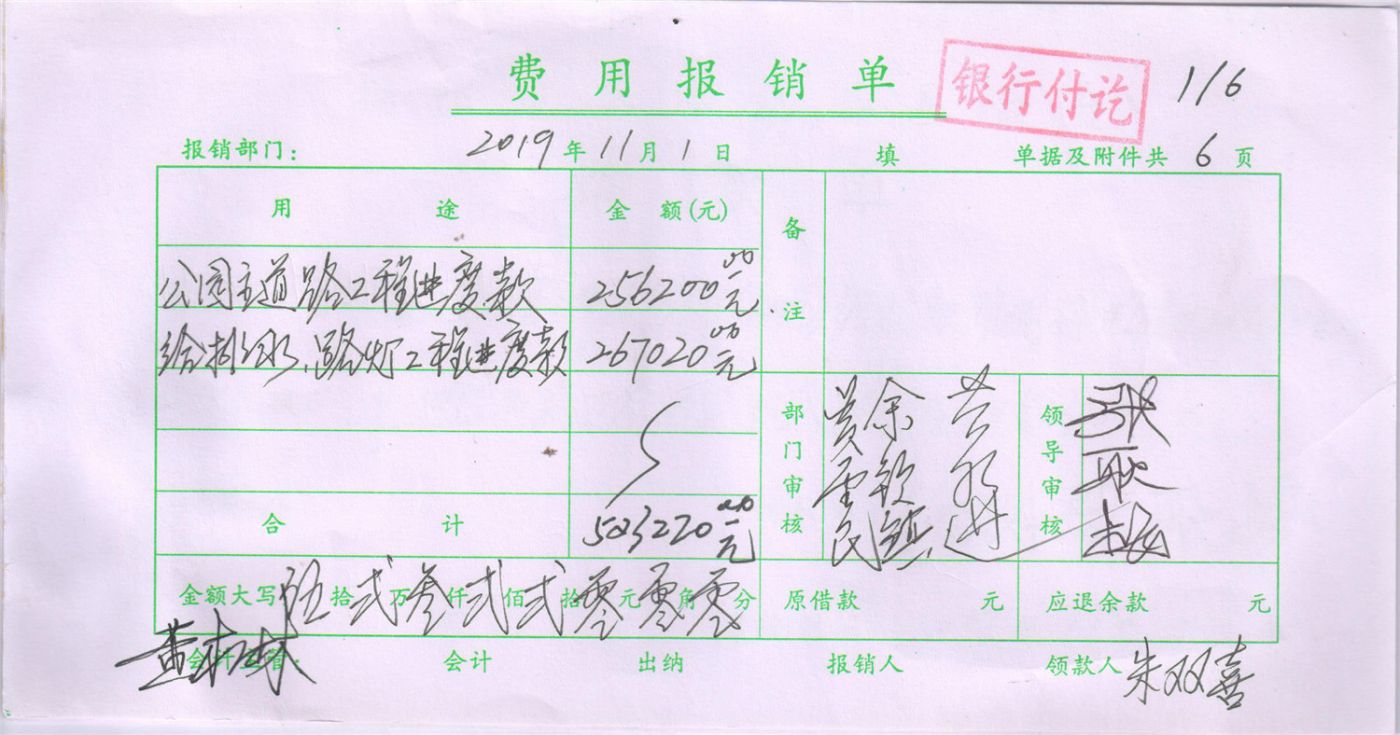 费用报销单
银行付讫
1/6
报销部门： 2019年11月1日 填 单据及附件共 6 页
用途 金额(元) 备注
公园主道路工程进度款 256200.00元
给排水、路灯工程进度款 267020.00元
部门审核 黄雲民 余钦镇 领导审核
合计 523220.00元
金额大写 伍拾弍万叁仟弍佰弍拾零元零角零分 原借款 元 应退余款 元
会计主管： 会计 出纳 报销人 领款人 朱双喜